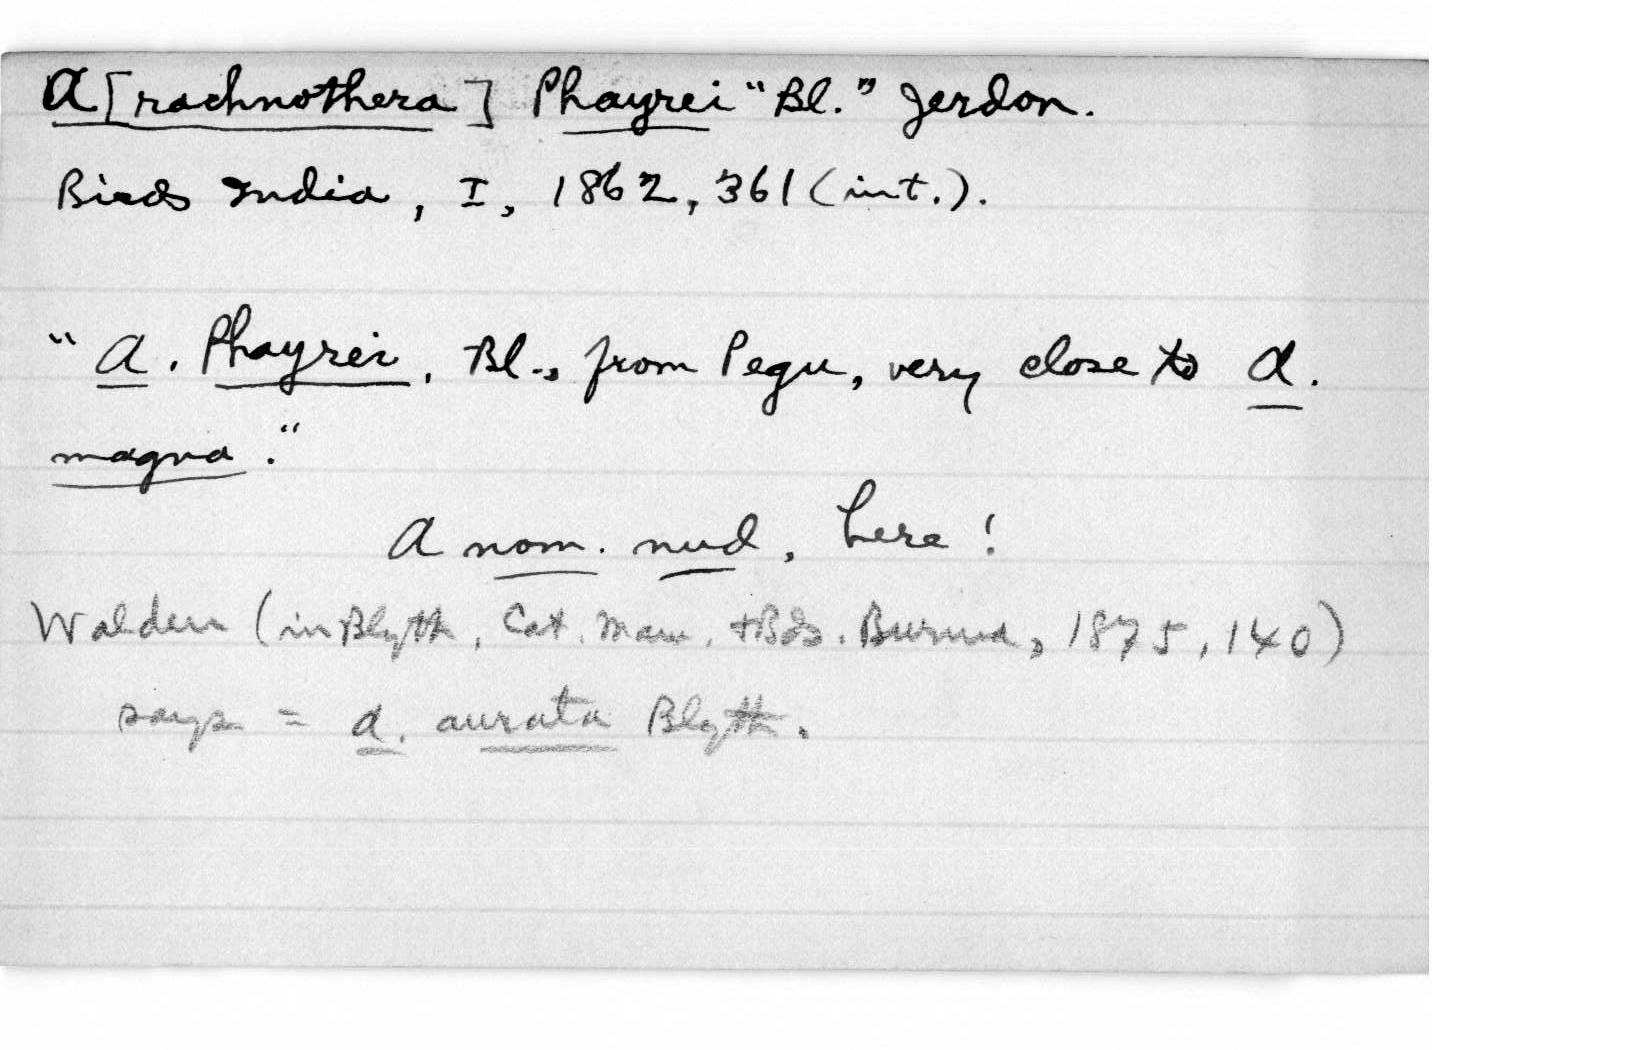 A[rachnothera] Phayrei "Bl." Jerdon.
Birds India, I, 1862, 361 (int.).
"A. Phayrei, Bl., from Pegu, very close to A.
magna."
A nom. nud. here!
Walden (in Blyth, Cat. Mam. + Bds. Burma, 1875, 140)
says = A. aurata Blyth.